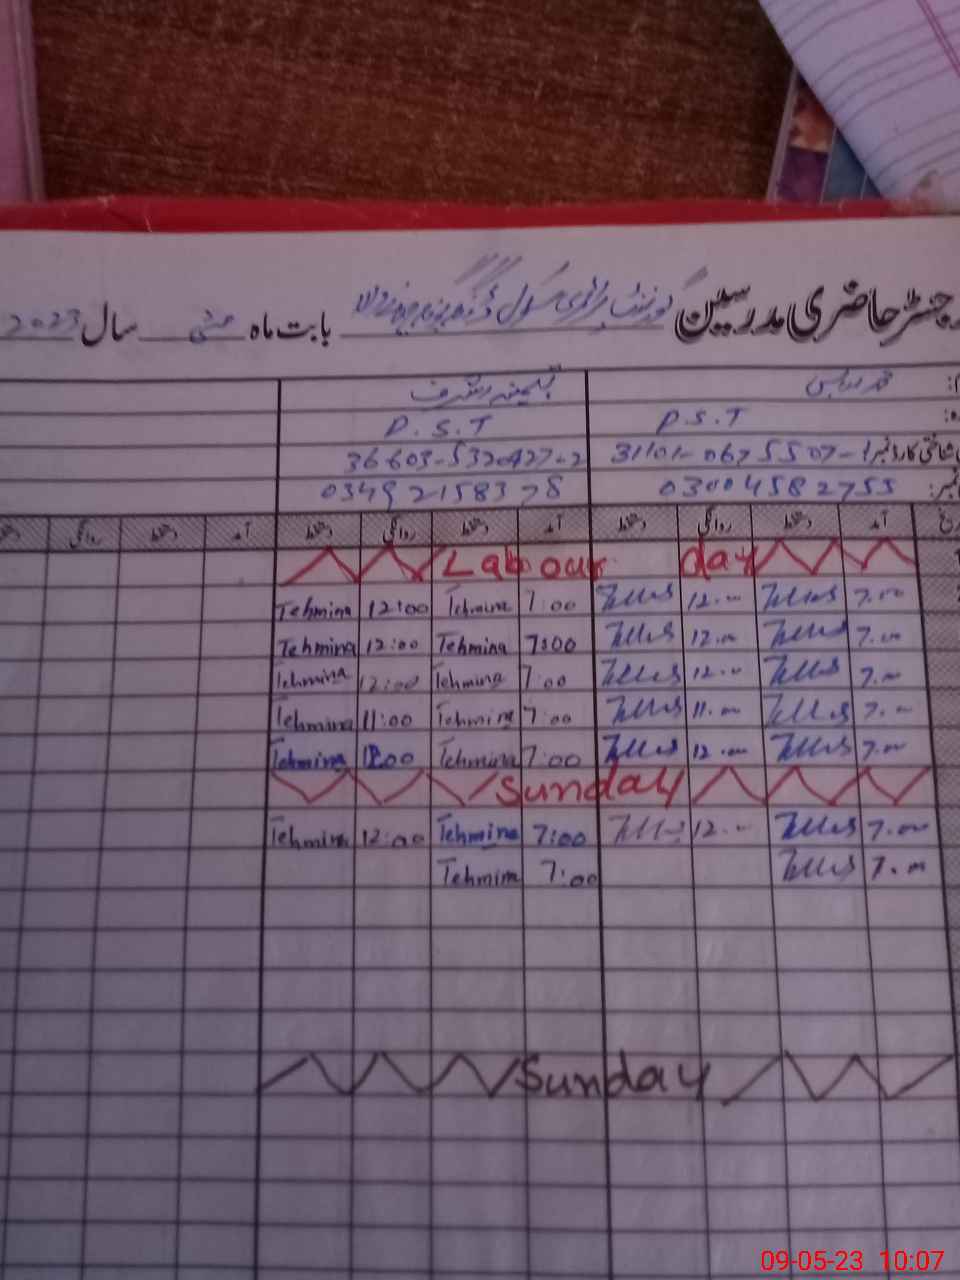 رجسٹر حاضری مدرسین گورنمنٹ پرائمری سکول بابت ماہ مئی سال 2023
P.S.T P.S.T
شناختی کارڈ نمبر 31101-0675507-1 36603-5320427-2
03004582755 03492158378
آمد دستخط روانگی دستخط آمد دستخط روانگی دستخط آمد دستخط روانگی
Labour day
Tehmina 12:00 Tehmina 7:00 12.00 7.00
Tehmina 12:00 Tehmina 7:00 12.00 7.00
Tehmina 12:00 Tehmina 7:00 12.00 7.00
Tehmina 11:00 Tehmina 7:00 11.00 7.00
Tehmina 12:00 Tehmina 7:00 12.00 7.00
Sunday
Tehmina 12:00 Tehmina 7:00 12.00 7.00
Tehmina 7:00 7.00
Sunday
09-05-23 10:07